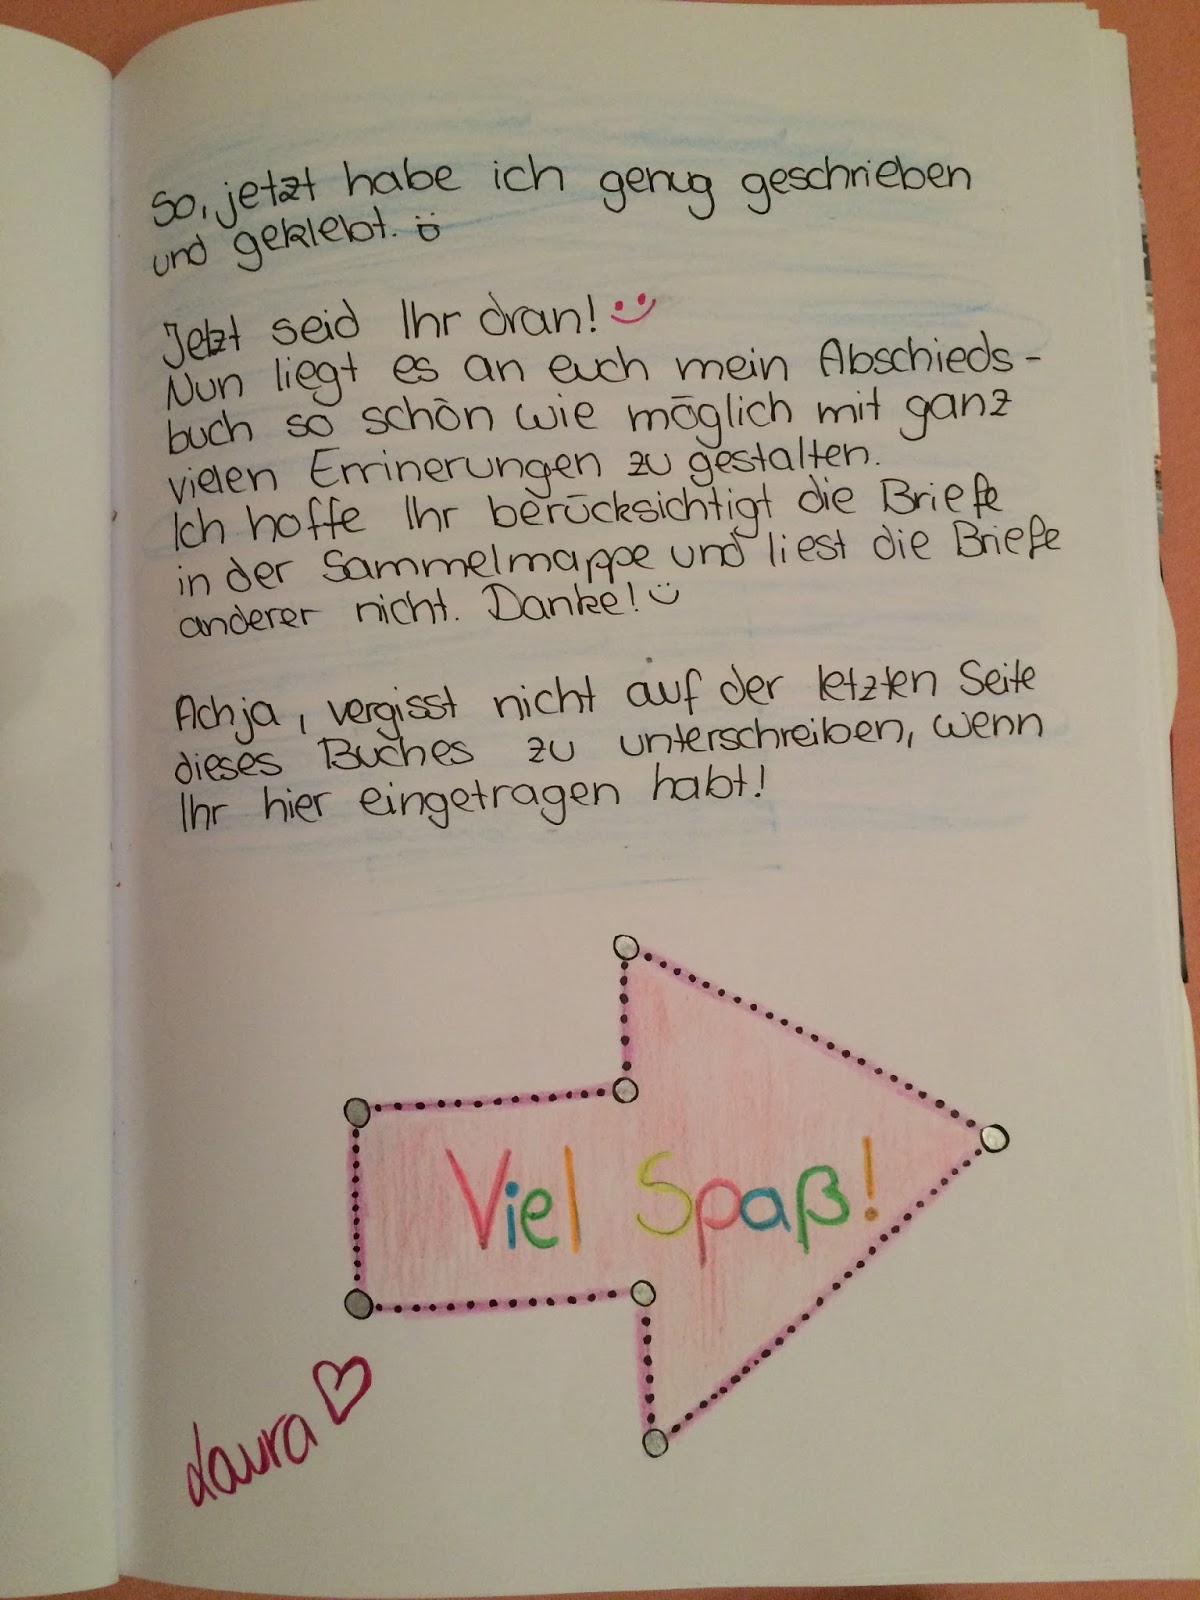 So, jetzt habe ich genug geschrieben
und geklebt. :)
Jetzt seid Ihr dran! :)
Nun liegt es an euch mein Abschieds-
buch so schön wie möglich mit ganz
vielen Errinerungen zu gestalten.
Ich hoffe Ihr berücksichtigt die Briefe
in der Sammelmappe und liest die Briefe
anderer nicht. Danke! :)
Achja, vergisst nicht auf der letzten Seite
dieses Buches zu unterschreiben, wenn
Ihr hier eingetragen habt!
Viel Spaß!
Laura ♡